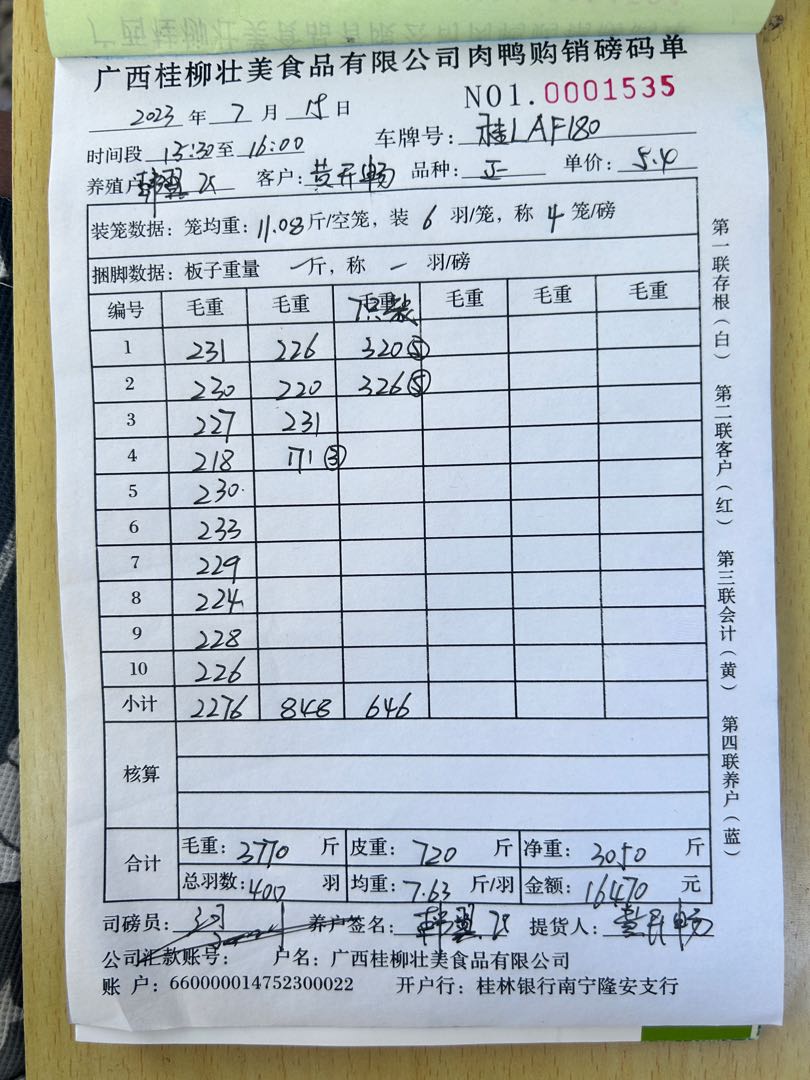 广西桂柳壮美食品有限公司肉鸭购销磅码单
NO1.0001535
2023 年 7 月 15 日
车牌号: 桂LAF180
时间段 13:30 至 16:00
养殖户 韩翼 客户: 黄开畅 品种: 正 单价: 5.4
装笼数据: 笼均重: 11.08 斤/空笼, 装 6 羽/笼, 称 4 笼/磅
捆脚数据: 板子重量 一 斤, 称 一 羽/磅
编号 毛重 毛重 毛重 毛重 毛重 毛重
7只装
1 231 226 320⑤
2 230 220 326⑤
3 227 231
4 218 171③
5 230
6 233
7 229
8 224
9 228
10 226
小计 2276 848 646
核算
合计
毛重: 3770 斤 皮重: 720 斤 净重: 3050 斤
总羽数: 400 羽 均重: 7.63 斤/羽 金额: 16470 元
司磅员: 养户签名: 韩翼 提货人: 黄开畅
公司汇款账号: 户名: 广西桂柳壮美食品有限公司
账 户: 660000014752300022 开户行: 桂林银行南宁隆安支行
第一联存根(白) 第二联客户(红) 第三联会计(黄) 第四联养户(蓝)